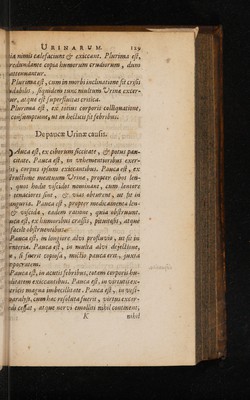 URINARUM. 129
ia nimis calefaciunt & exiccant. Plurima est,
redundante copia humorum crudorum, dum
attenuantur.
Plurima est, cum in morbi inclinatione fit crisis
, siquidem tunc multum Urina excer-
ur, atque est superfluitas critica.
Plurima est, ex totius corporis colliquatione,
consumptione, ut in hecticis febribus.
De paucæ Urinæ causis.
Pauca est, ex ciborum siccitate, & potus pau-
citate. Pauca est, in vehementioribus exer-
corpus ipsum exiccantibus. Pauca est, ex
meatuum Urinæ, propter cibos len-
quos hodie viscidos nominant, cum lentore
tenaciores sint, & vias obturent, ut fit in
anguria. Pauca est, propter medicamenta len-
& viscida, eadem ratione, quia obstruunt.
auca est, ex humoribus crassis, pituitosis, atque
facile obstruentibus.
Pauca est, in longiore alvi profluvio, ut fit in
enteria. Pauca est, in multa alvi dejectione,
si fuerit copiosa, mictio pauca erit, juxta
Hippocratem.
Pauca est, in acutis febribus, totam corporis hu-
exiccantibus. Pauca est, in virtutis ex-
tricis magna imbecillitate. Pauca est, in vesi-
paralysi, cum hac resoluta fuerit, virtus excer-
cessat, atque nervi emolliti nihil continent,
K nihil